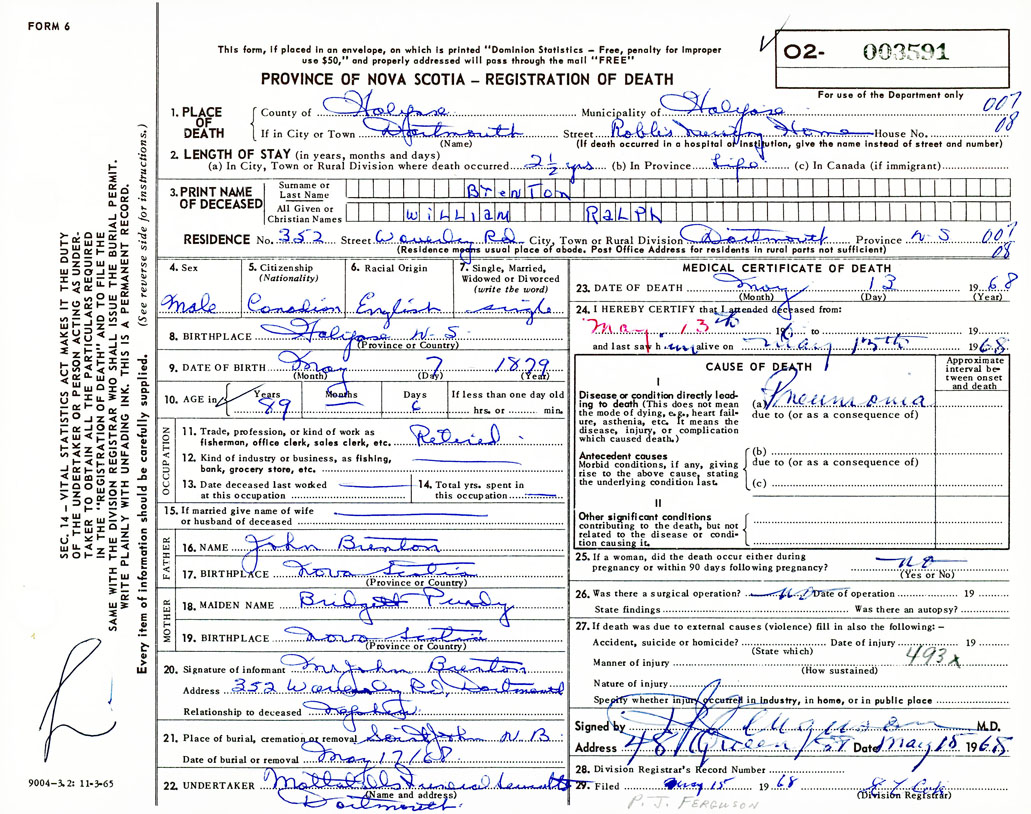 FORM 6
This form, if placed in an envelope, on which is printed "Dominion Statistics – Free, penalty for improper
use $50," and properly addressed will pass through the mail "FREE"
PROVINCE OF NOVA SCOTIA – REGISTRATION OF DEATH
O2- 003591
For use of the Department only
007
08
1. PLACE OF DEATH
County of Halifax Municipality of Halifax
If in City or Town Dartmouth Street Nursing Home House No.
(Name) (If death occurred in a hospital or institution, give the name instead of street and number)
2. LENGTH OF STAY (in years, months and days)
(a) In City, Town or Rural Division where death occurred 2½ yrs (b) In Province Life (c) In Canada (if immigrant)
3. PRINT NAME OF DECEASED
Surname or Last Name BrenTon
All Given or Christian Names William Ralph
RESIDENCE No. 352 Street Waverley Rd City, Town or Rural Division Dartmouth Province N S
007
08
(Residence means usual place of abode. Post Office Address for residents in rural parts not sufficient)
4. Sex
Male
5. Citizenship (Nationality)
Canadian
6. Racial Origin
English
7. Single, Married, Widowed or Divorced (write the word)
single
8. BIRTHPLACE Halifax N.S.
(Province or Country)
9. DATE OF BIRTH May 7 1879
(Month) (Day) (Year)
10. AGE in Years 89 Months – Days 6 If less than one day old
hrs. or min.
OCCUPATION
11. Trade, profession, or kind of work as fisherman, office clerk, sales clerk, etc. Retired
12. Kind of industry or business, as fishing, bank, grocery store, etc.
13. Date deceased last worked at this occupation
14. Total yrs. spent in this occupation
15. If married give name of wife or husband of deceased
FATHER
16. NAME John Brenton
17. BIRTHPLACE Nova Scotia
(Province or Country)
MOTHER
18. MAIDEN NAME Bridgett Purdy
19. BIRTHPLACE Nova Scotia
(Province or Country)
20. Signature of informant Mr John Brenton
Address 352 Waverley Rd, Dartmouth
Relationship to deceased nephew
21. Place of burial, cremation or removal Saint John N B
Date of burial or removal May 17/68
22. UNDERTAKER Funeral
(Name and address)
Dartmouth
MEDICAL CERTIFICATE OF DEATH
23. DATE OF DEATH May 13 1968
(Month) (Day) (Year)
24. I HEREBY CERTIFY that I attended deceased from:
May 13th 196 to 19
and last saw him alive on May 13th 1968
CAUSE OF DEATH
Approximate interval between onset and death
I
Disease or condition directly leading to death (This does not mean the mode of dying, e.g., heart failure, asthenia, etc. It means the disease, injury, or complication which caused death.)
(a) Pneumonia
due to (or as a consequence of)
Antecedent causes
Morbid conditions, if any, giving rise to the above cause, stating the underlying condition last.
(b)
due to (or as a consequence of)
(c)
II
Other significant conditions
contributing to the death, but not related to the disease or condition causing it.
25. If a woman, did the death occur either during pregnancy or within 90 days following pregnancy? no
(Yes or No)
26. Was there a surgical operation? no Date of operation 19
State findings Was there an autopsy?
27. If death was due to external causes (violence) fill in also the following: –
Accident, suicide or homicide? Date of injury 19
(State which)
493x
Manner of injury
(How sustained)
Nature of injury
Specify whether injury occurred in industry, in home, or in public place
Signed by Ferguson M.D.
Address 48 Queen St Date May 15 1968
28. Division Registrar's Record Number
29. Filed May 15 1968
(Division Registrar)
P. J. FERGUSON
SEC. 14 – VITAL STATISTICS ACT MAKES IT THE DUTY
OF THE UNDERTAKER OR PERSON ACTING AS UNDER-
TAKER TO OBTAIN ALL THE PARTICULARS REQUIRED
IN THE "REGISTRATION OF DEATH" AND TO FILE THE
SAME WITH THE DIVISION REGISTRAR WHO SHALL ISSUE THE BURIAL PERMIT.
WRITE PLAINLY WITH UNFADING INK. THIS IS A PERMANENT RECORD.
Every item of information should be carefully supplied. (See reverse side for instructions.)
9004-3.2: 11-3-65